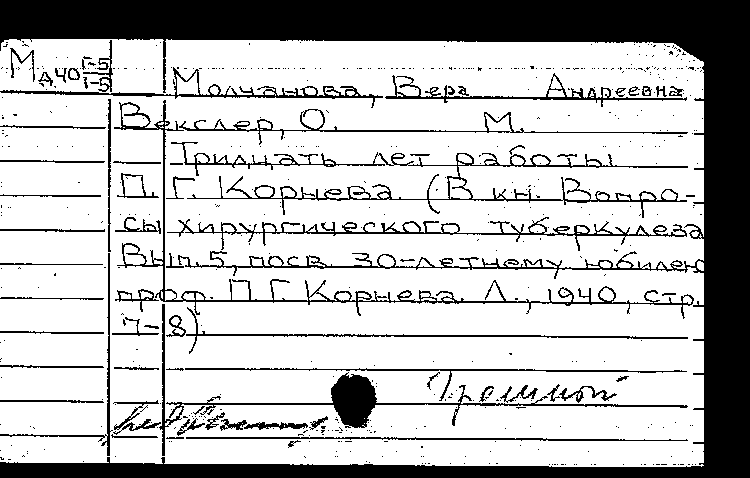 Мд40 Г-5
1-5
Молчанова, Вера Андреевна
Векслер, О. М.
Тридцать лет работы
П. Г. Корнева. (В кн. Вопро-
сы хирургического туберкулеза
Вып. 5, посв. 30-летнему юбилею
проф. П. Г. Корнева. Л., 1940, стр.
7-8).